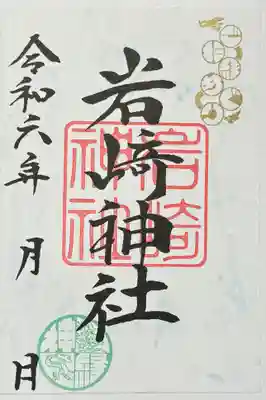 岩﨑神社
岩崎神社
令和六年
月
日